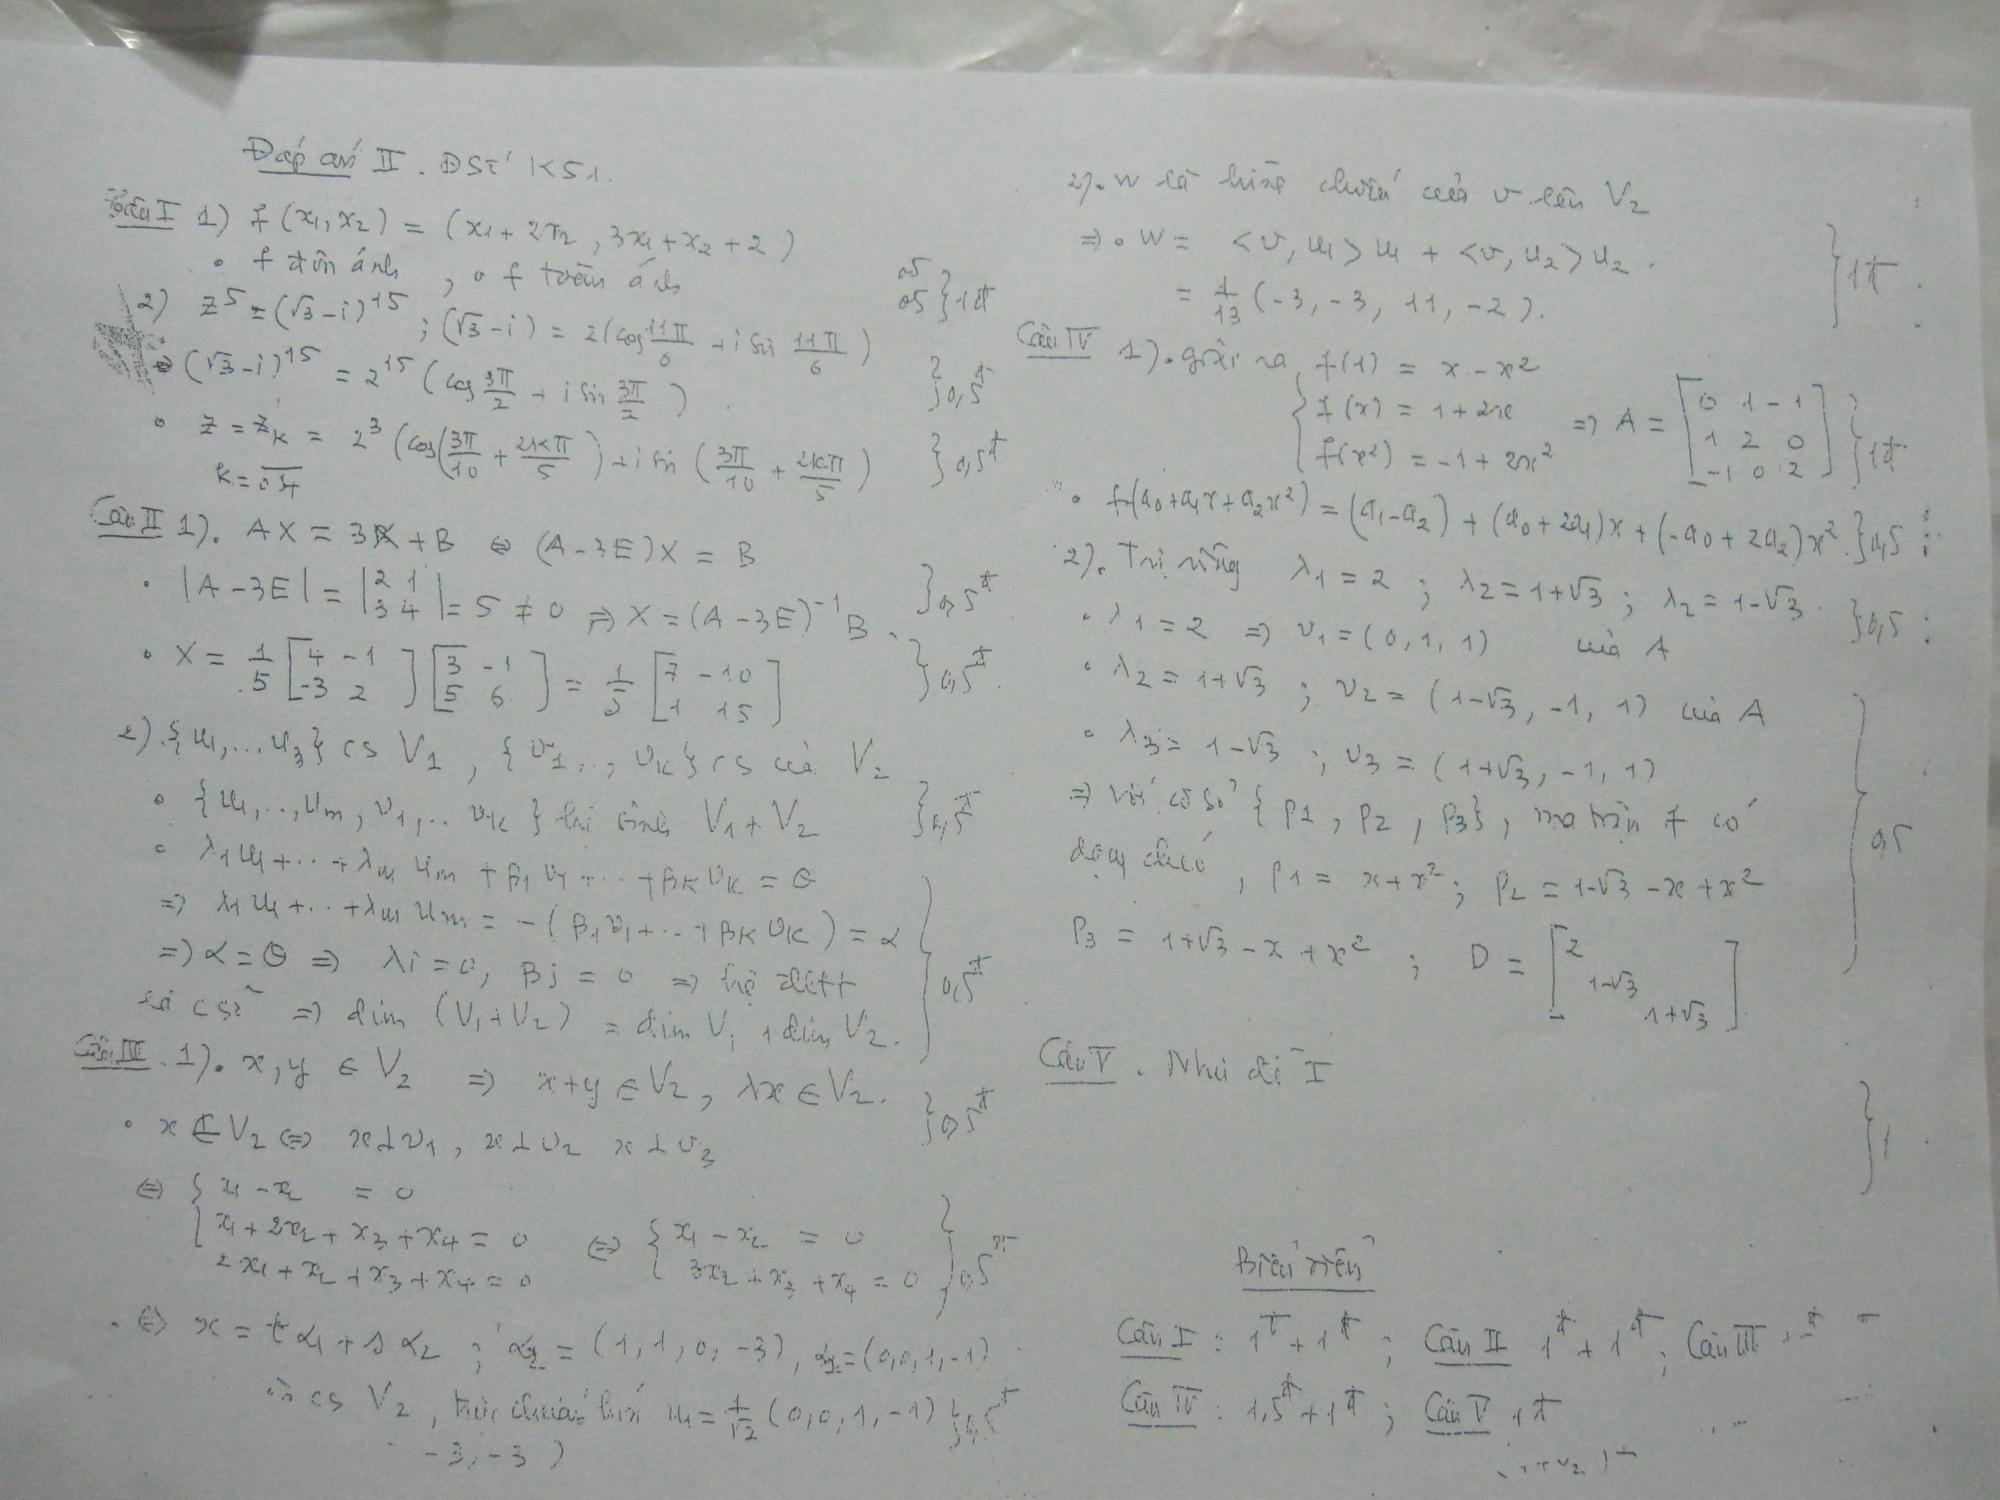 Đáp án II. ĐSTT K51.
Câu I 1) f(x₁, x₂) = (x₁ + 2x₂, 3x₁ + x₂ + 2)
• f đơn ánh, • f toàn ánh
05
05 } 1đ
2) z⁵ = (√3 - i)¹⁵ ; (√3 - i) = 2(cos 11π/6 + i sin 11π/6)
(√3 - i)¹⁵ = 2¹⁵ (cos 3π/2 + i sin 3π/2). } 0,5đ
• z = z_k = 2³ (cos(3π/10 + 2kπ/5) + i sin (3π/10 + 2kπ/5) } 0,5đ
k = 0,4
Câu II 1). AX = 3X + B ⇔ (A - 3E)X = B
• |A - 3E| = |2 1; 3 4| = 5 ≠ 0 ⇒ X = (A - 3E)⁻¹ B. } 0,5đ
• X = 1/5 [4 -1; -3 2] [3 -1; 5 6] = 1/5 [7 -10; 1 15] } 0,5đ
2). {u₁, ... u₃} cs V₁, {v₁, .., v_k} cs của V₂
• {u₁, .., u_m, v₁, .. v_k} hệ sinh V₁ + V₂ } 0,5đ
• λ₁u₁ + ... + λ_m u_m + β₁v₁ + ... + β_k v_k = θ
⇒ λ₁u₁ + ... + λ_m u_m = -(β₁v₁ + ... + β_k v_k) = α
⇒ α = θ ⇒ λi = 0, βj = 0 ⇒ hệ đltt } 0,5đ
là cs ⇒ dim (V₁ + V₂) = dim V₁ + dim V₂.
Câu III. 1). x, y ∈ V₂ ⇒ x + y ∈ V₂, λx ∈ V₂. } 0,5đ
• x ∈ V₂ ⇔ x ⊥ v₁, x ⊥ v₂ x ⊥ v₃
⇔ { x₁ - x₂ = 0
x₁ + 2x₂ + x₃ + x₄ = 0 ⇔ { x₁ - x₂ = 0
2x₁ + x₂ + x₃ + x₄ = 0 3x₂ + x₃ + x₄ = 0 } 0,5đ
• ⇔ x = t α₁ + s α₂ ; α₂ = (1, 1, 0, -3), α₁ = (0, 0, 1, -1)
cs V₂, trực chuẩn hoá u₁ = 1/√2 (0, 0, 1, -1) } 0,5đ
-3, -3)
2). w là hình chiếu của v lên V₂
⇒ • w = <v, u₁> u₁ + <v, u₂> u₂.
= 1/13 (-3, -3, 11, -2). } 1đ
Câu IV 1). giải ra { f(1) = x - x²
f(x) = 1 + 2x ⇒ A = [0 1 -1; 1 2 0; -1 0 2] } 1đ
f(x²) = -1 + 2x²
• f(a₀ + a₁x + a₂x²) = (a₁ - a₂) + (a₀ + 2a₁)x + (-a₀ + 2a₂)x². } 0,5
2). Trị riêng λ₁ = 2 ; λ₂ = 1+√3 ; λ₂ = 1-√3. } 0,5
• λ₁ = 2 ⇒ v₁ = (0, 1, 1) của A
• λ₂ = 1+√3 ; v₂ = (1-√3, -1, 1) của A
• λ₃ = 1-√3 ; v₃ = (1+√3, -1, 1)
⇒ với cơ sở {p₁, p₂, p₃}, ma trận f có
dạng chéo, p₁ = x + x² ; p₂ = 1-√3 - x + x² } 0,5
p₃ = 1+√3 - x + x² ; D = [2 1-√3 1+√3]
Câu V. Như đề I
} 1
Biểu điểm
Câu I : 1đ + 1đ ; Câu II 1đ + 1đ ; Câu III
Câu IV : 1,5đ + 1đ ; Câu V 1đ